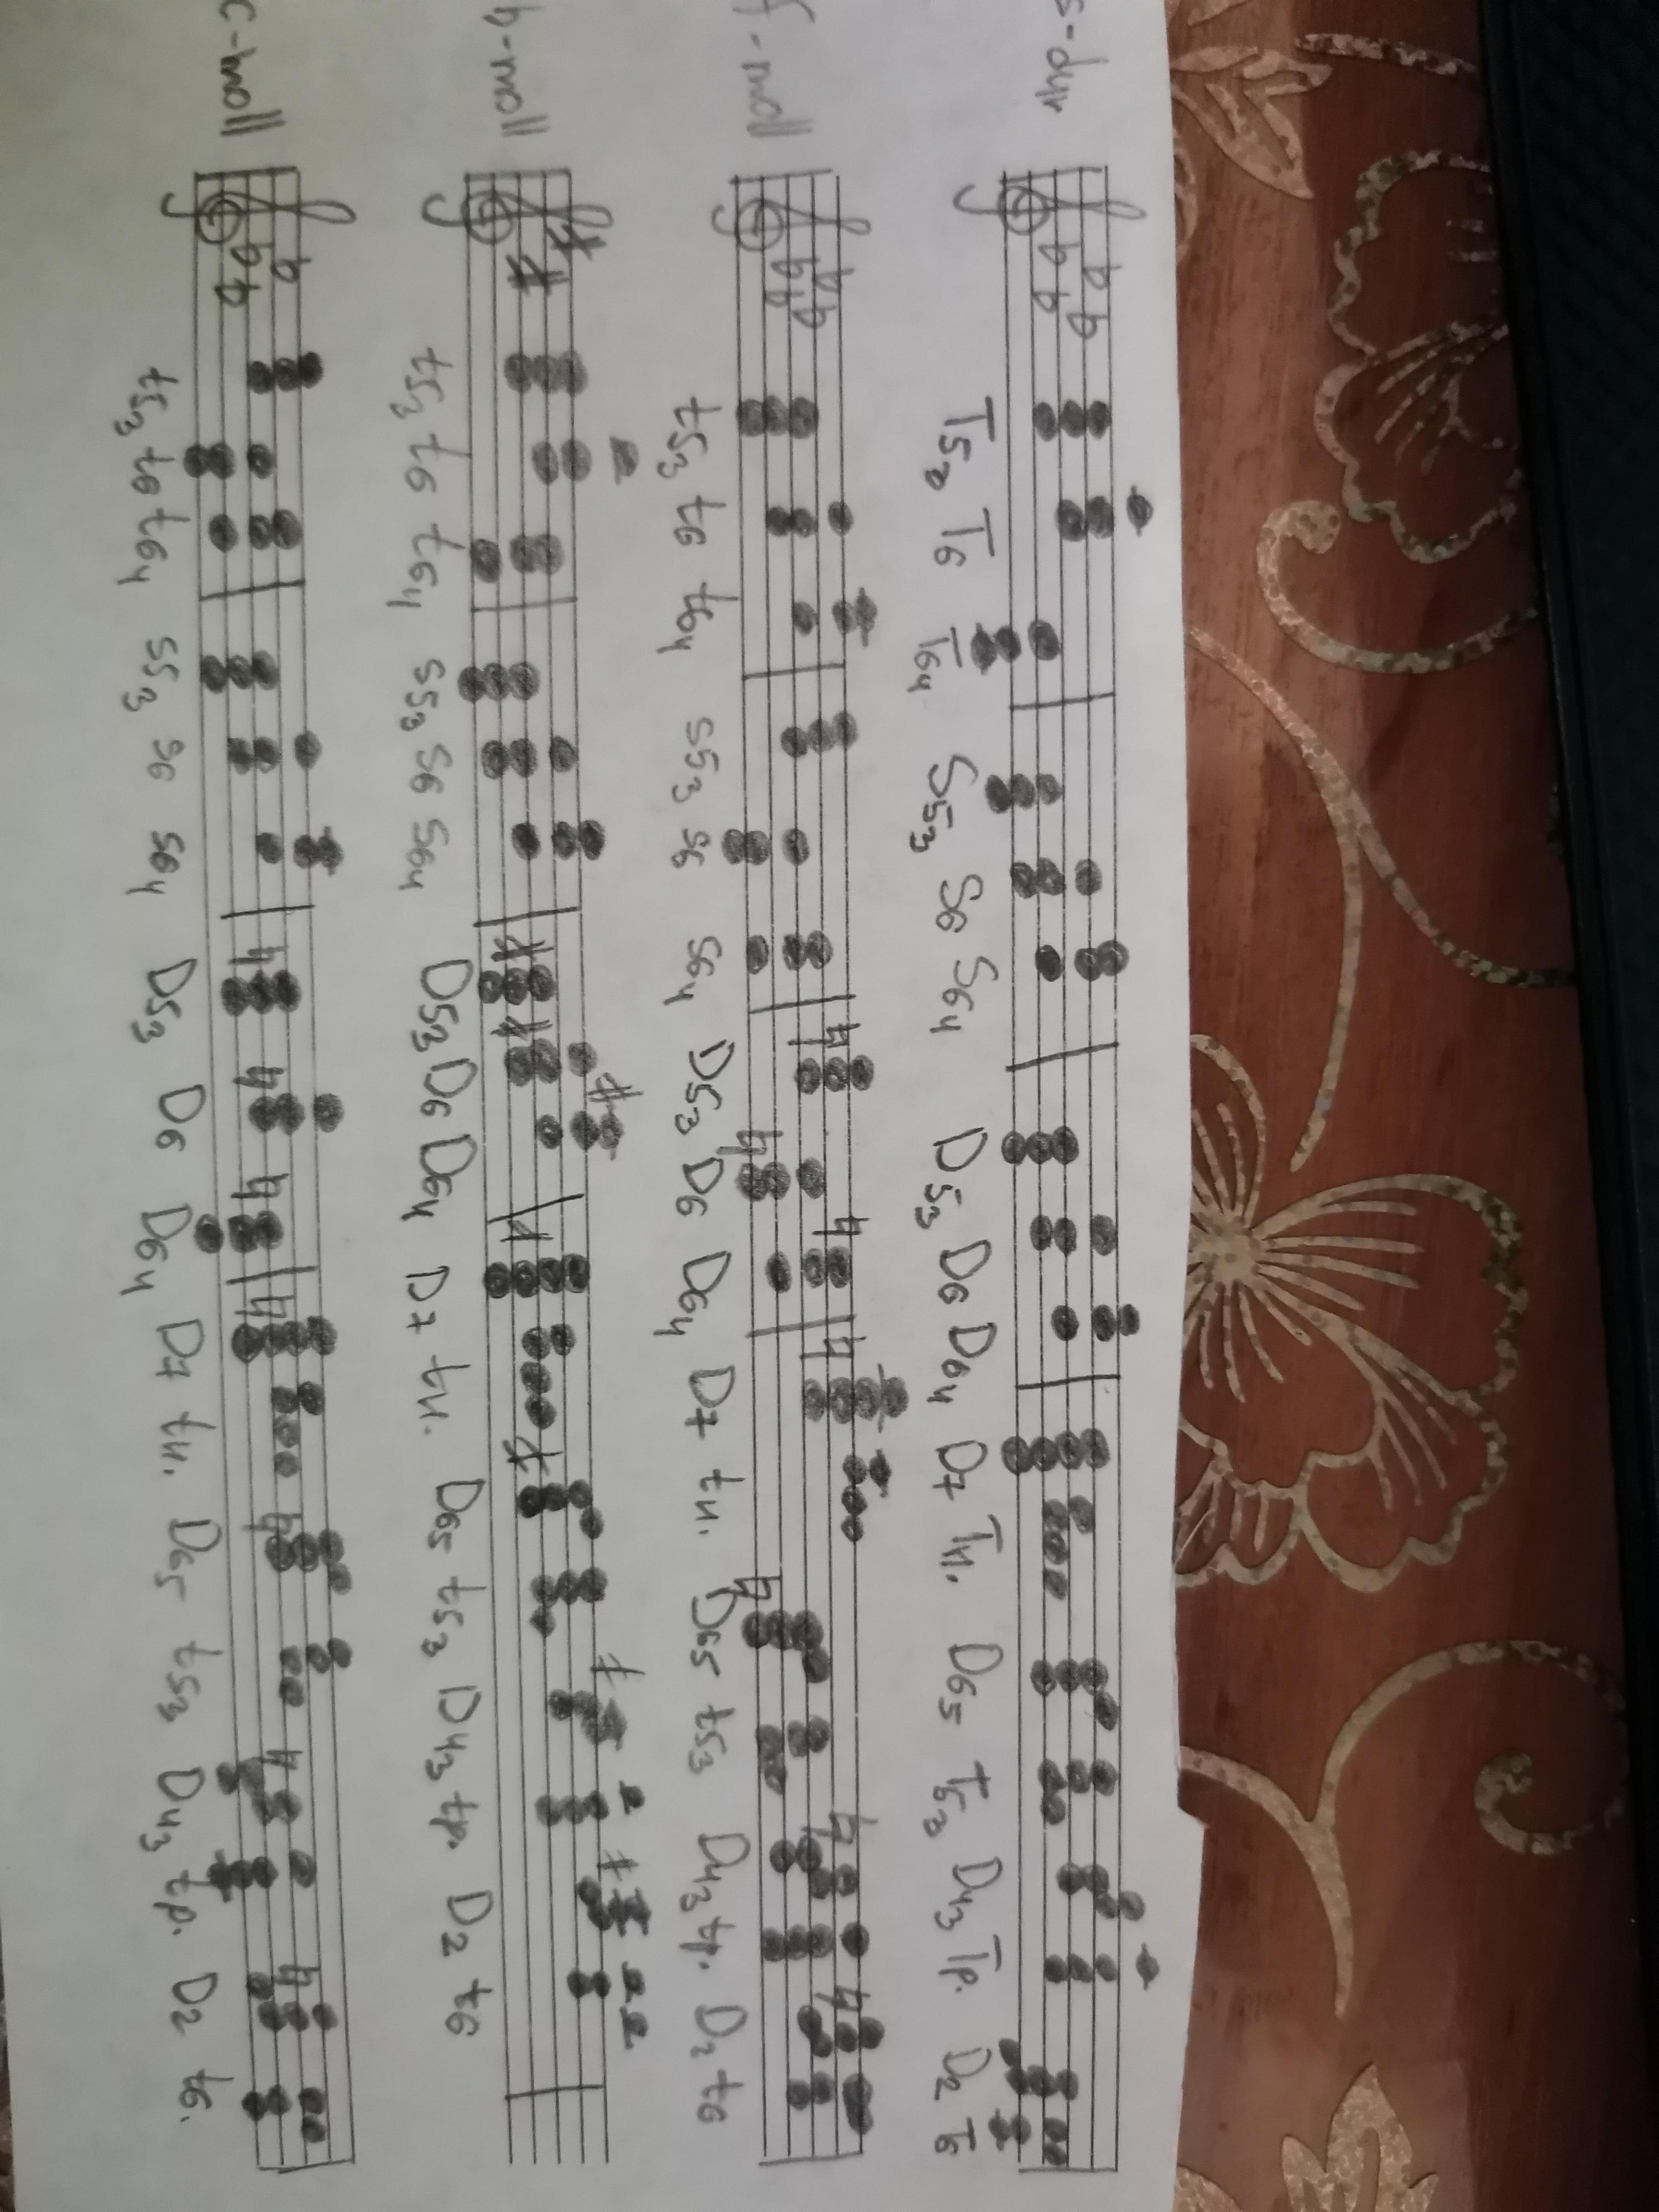 s-dur
T53 T6 T64 S53 S6 S64 D53 D6 D64 D7 Tн. D65 T53 D43 Tр. D2 T6
f-moll
t53 t6 t64 s53 s6 s64 D53 D6 D64 D7 tн. D65 t53 D43 tр. D2 t6
h-moll
t53 t6 t64 s53 s6 s64 D53 D6 D64 D7 tн. D65 t53 D43 tр. D2 t6
c-moll
t53 t6 t64 s53 s6 s64 D53 D6 D64 D7 tн. D65 t53 D43 tр. D2 t6.